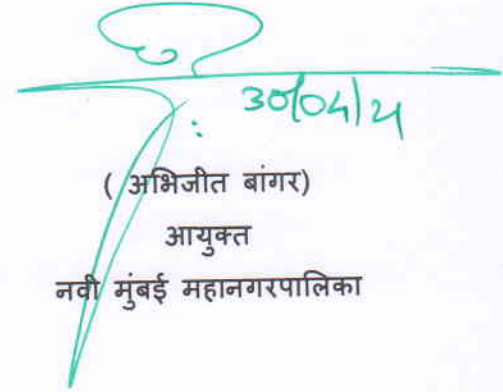 30/04/21
( अभिजीत बांगर)
आयुक्त
नवी मुंबई महानगरपालिका